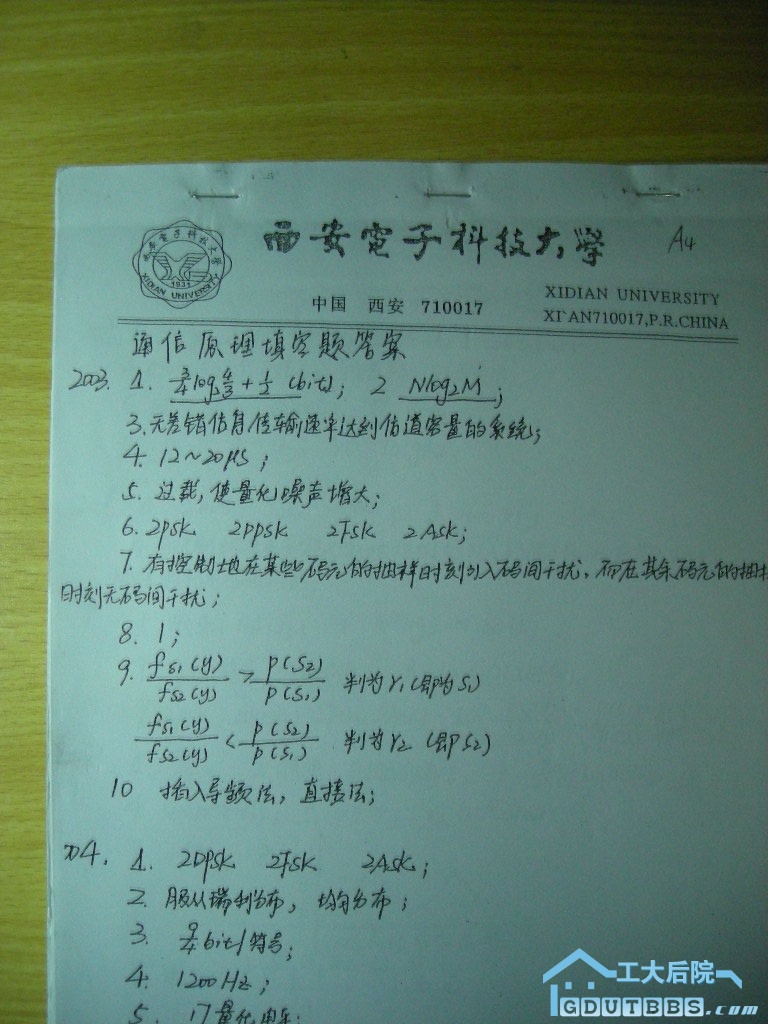 西安电子科技大学
A4
西安电子科技大学
1931
XIDIAN UNIVERSITY
中国 西安 710017
XIDIAN UNIVERSITY
XI'AN710017,P.R.CHINA
通信原理填空题答案
2003. 1. 3/4 log₂ 4/3 + 1/2 (bit); 2 Nlog₂M;
3. 无差错信息传输速率达到信道容量的系统;
4. 12~20μs;
5. 过载, 使量化噪声增大;
6. 2PSK 2DPSK 2FSK 2ASK;
7. 有控制地在某些码元的抽样时刻引入码间干扰, 而在其余码元的抽样
时刻无码间干扰;
8. 1;
9. fs₁(y)/fs₂(y) > P(S₂)/P(S₁) 判为r₁(即为S₁)
fs₁(y)/fs₂(y) < P(S₂)/P(S₁) 判为r₂ (即S₂)
10 插入导频法, 直接法;
04. 1. 2DPSK 2FSK 2ASK;
2. 服从瑞利分布, 均匀分布;
3. 9/4 bit/符号;
4. 1200Hz;
5. 17量化电平;
工大后院
GDUTBBS.com